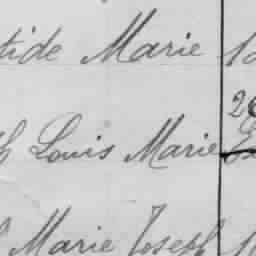 tide Marie
h Louis Marie
Marie Joseph